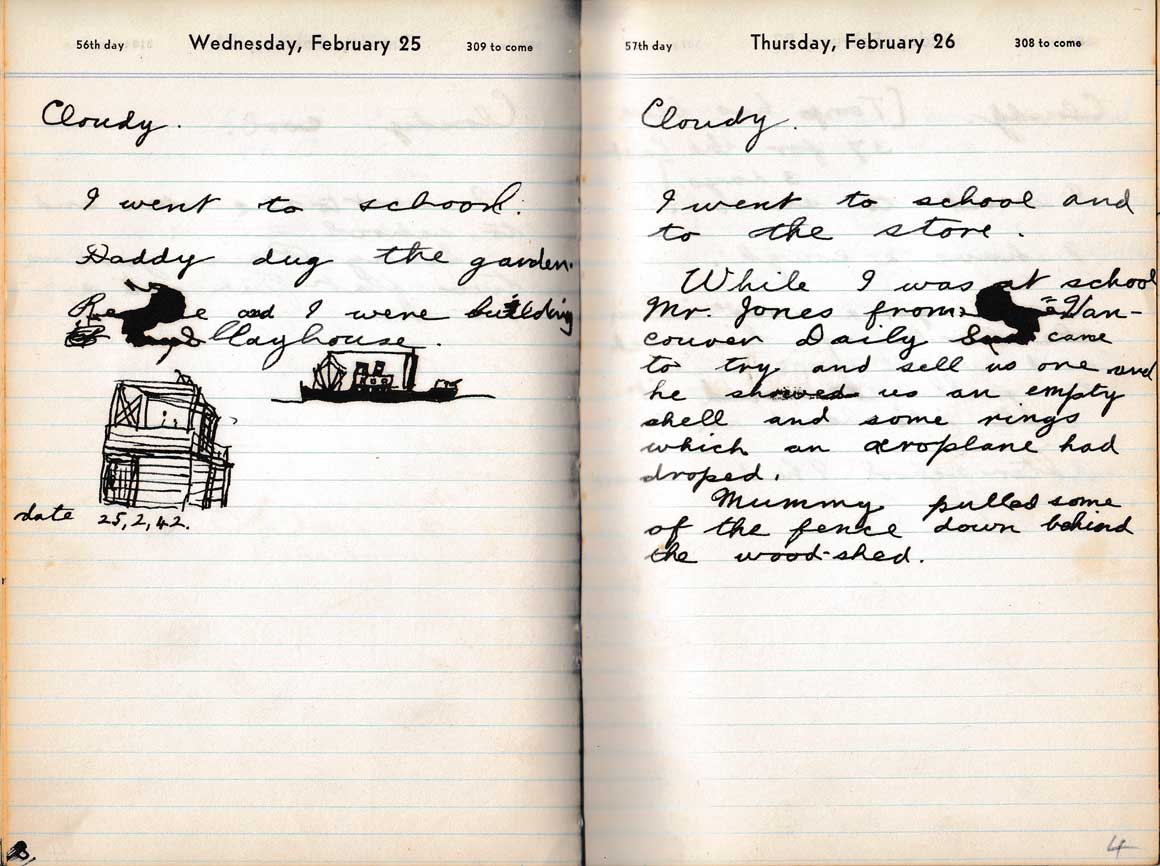 56th day Wednesday, February 25 309 to come
Cloudy.
I went to school.
Daddy dug the garden.
and I were building
Playhouse.
date 25,2,42.
57th day Thursday, February 26 308 to come
Cloudy.
I went to school and
to the store.
While I was at school
Mr. Jones from Van-
couver Daily came
to try and sell us one and
he showed us an empty
shell and some rings
which an aroplane had
droped.
Mummy pulled some
of the fence down behind
the wood-shed.
4